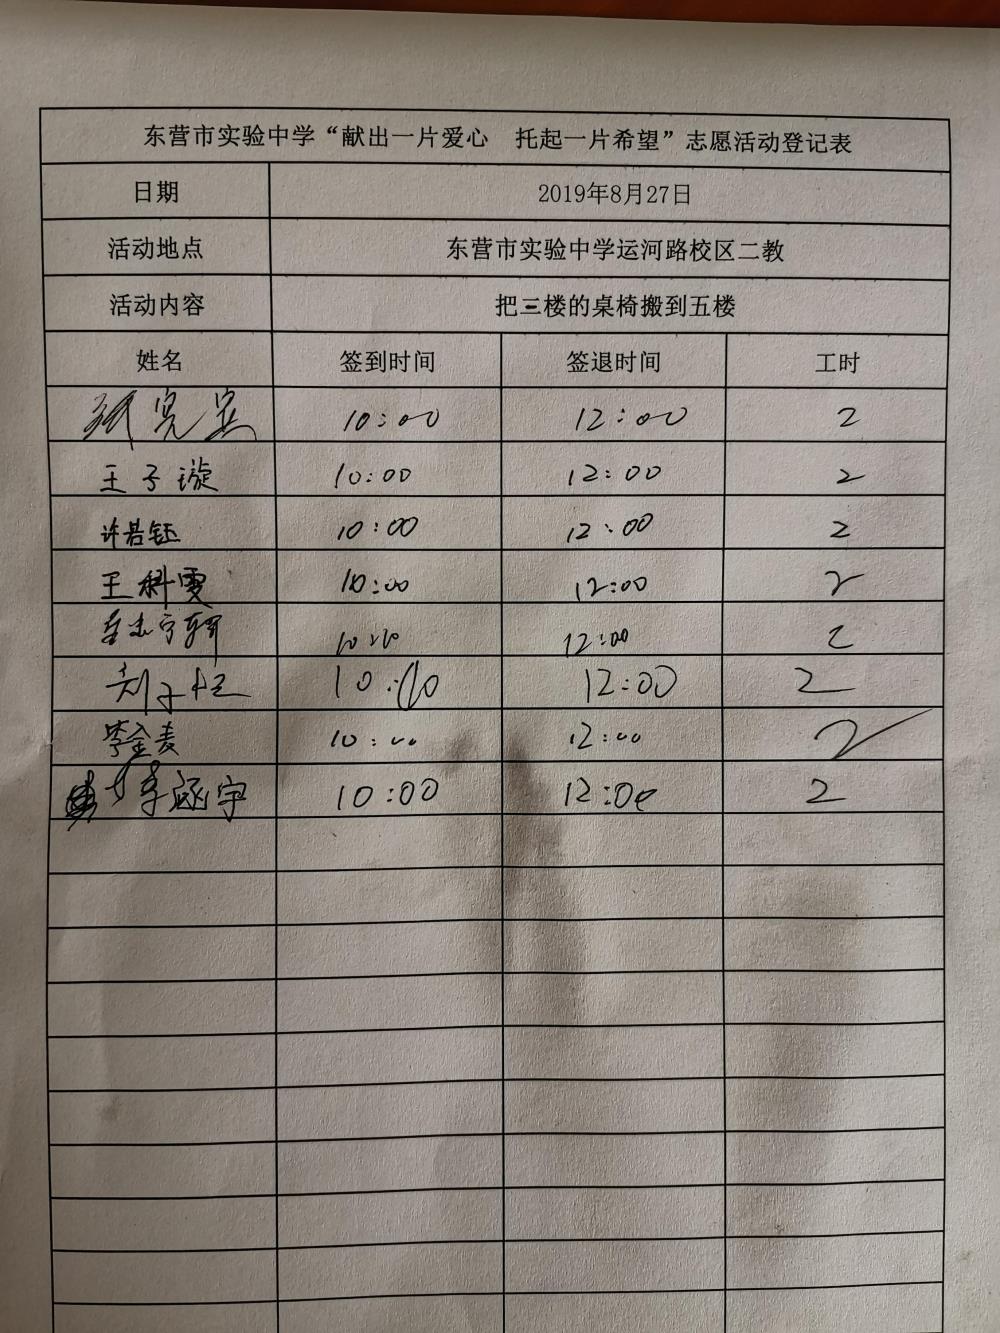 东营市实验中学“献出一片爱心 托起一片希望”志愿活动登记表
日期 2019年8月27日
活动地点 东营市实验中学运河路校区二教
活动内容 把三楼的桌椅搬到五楼
姓名 签到时间 签退时间 工时
10:00 12:00 2
王子璇 10:00 12:00 2
许若钰 10:00 12:00 2
王科雯 10:00 12:00 2
12:00 2
12:00 2
李金麦 10:00 12:00 2
李涵宇 10:00 12:00 2